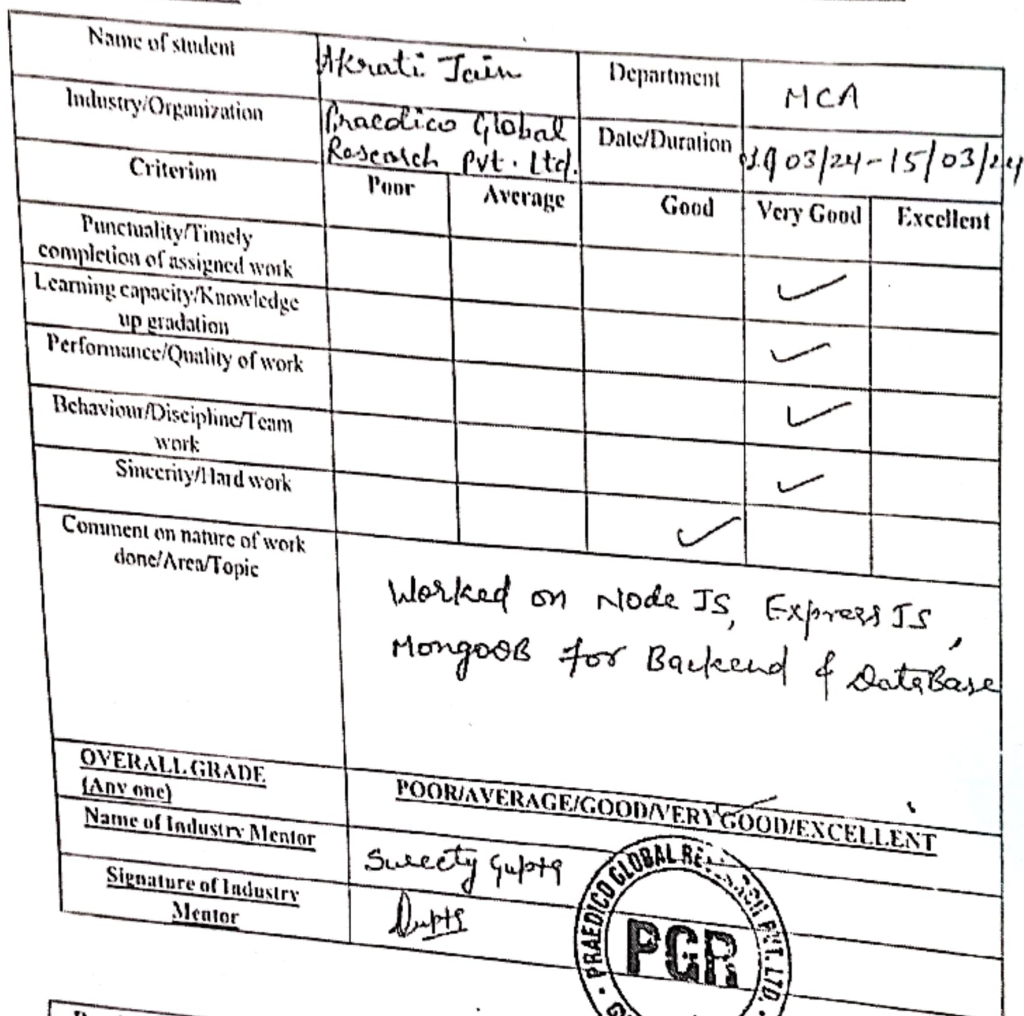 Name of student Akrati Jain Department MCA
Industry/Organization Praedico Global Research Pvt. Ltd. Date/Duration 03/24-15/03/24
Criterion Poor Average Good Very Good Excellent
Punctuality/Timely
completion of assigned work ✓
Learning capacity/Knowledge
up gradation ✓
Performance/Quality of work ✓
Behaviour/Discipline/Team
work ✓
Sincerity/Hard work ✓
Comment on nature of work
done/Area/Topic
Worked on Node JS, Express JS,
MongoDB for Backend & DataBase
OVERALL GRADE
(Any one) POOR/AVERAGE/GOOD/VERY GOOD/EXCELLENT
Name of Industry Mentor Sweety Gupta
Signature of Industry
Mentor Gupta
PRAEDICO GLOBAL RESEARCH PVT. LTD.
PGR